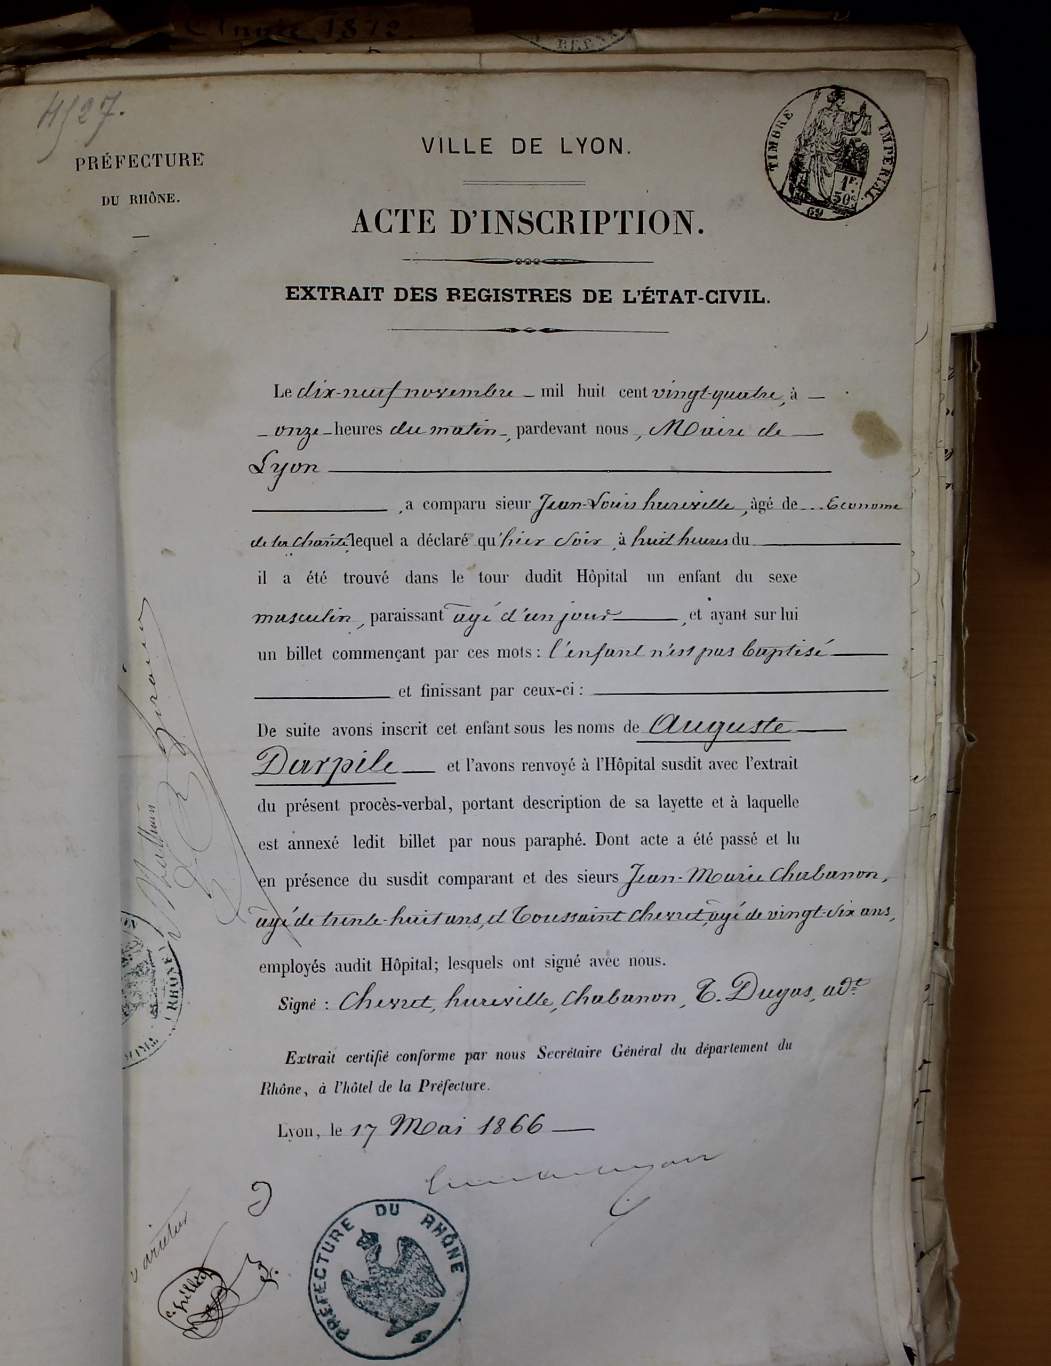 Année 1872
4527.
PRÉFECTURE
DU RHÔNE.
VILLE DE LYON.
TIMBRE IMPÉRIAL
1F
50c
69
ACTE D'INSCRIPTION.
EXTRAIT DES REGISTRES DE L'ÉTAT-CIVIL.
Le dix-neuf novembre mil huit cent vingt-quatre, à
onze heures du matin, pardevant nous, Maire de
Lyon
, a comparu sieur Jean-Louis hureville, âgé de ... Econome
de la Charité lequel a déclaré qu'hier soir, à huit heures du
il a été trouvé dans le tour dudit Hôpital un enfant du sexe
masculin, paraissant âgé d'un jour, et ayant sur lui
un billet commençant par ces mots : l'enfant n'est pas baptisé
et finissant par ceux-ci :
De suite avons inscrit cet enfant sous les noms de Auguste
Darpile et l'avons renvoyé à l'Hôpital susdit avec l'extrait
du présent procès-verbal, portant description de sa layette et à laquelle
est annexé ledit billet par nous paraphé. Dont acte a été passé et lu
en présence du susdit comparant et des sieurs Jean-Marie Chabanon,
âgé de trente-huit ans, et Toussaint Chevret, âgé de vingt-six ans,
employés audit Hôpital; lesquels ont signé avec nous.
Signé : Chevret, hureville, Chabanon, T. Dugas, adt
Extrait certifié conforme par nous Secrétaire Général du département du
Rhône, à l'hôtel de la Préfecture.
Lyon, le 17 Mai 1866
PRÉFECTURE DU RHÔNE
(RHÔNE)